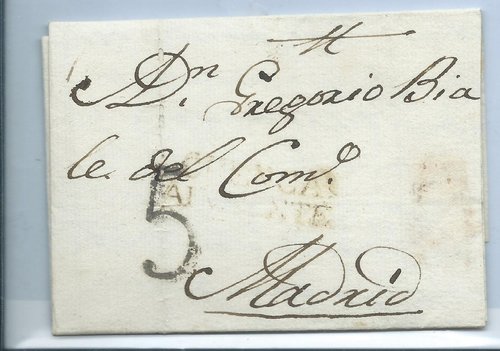 Dn. Gregorio Bia
le. del Como.
5
Madrid